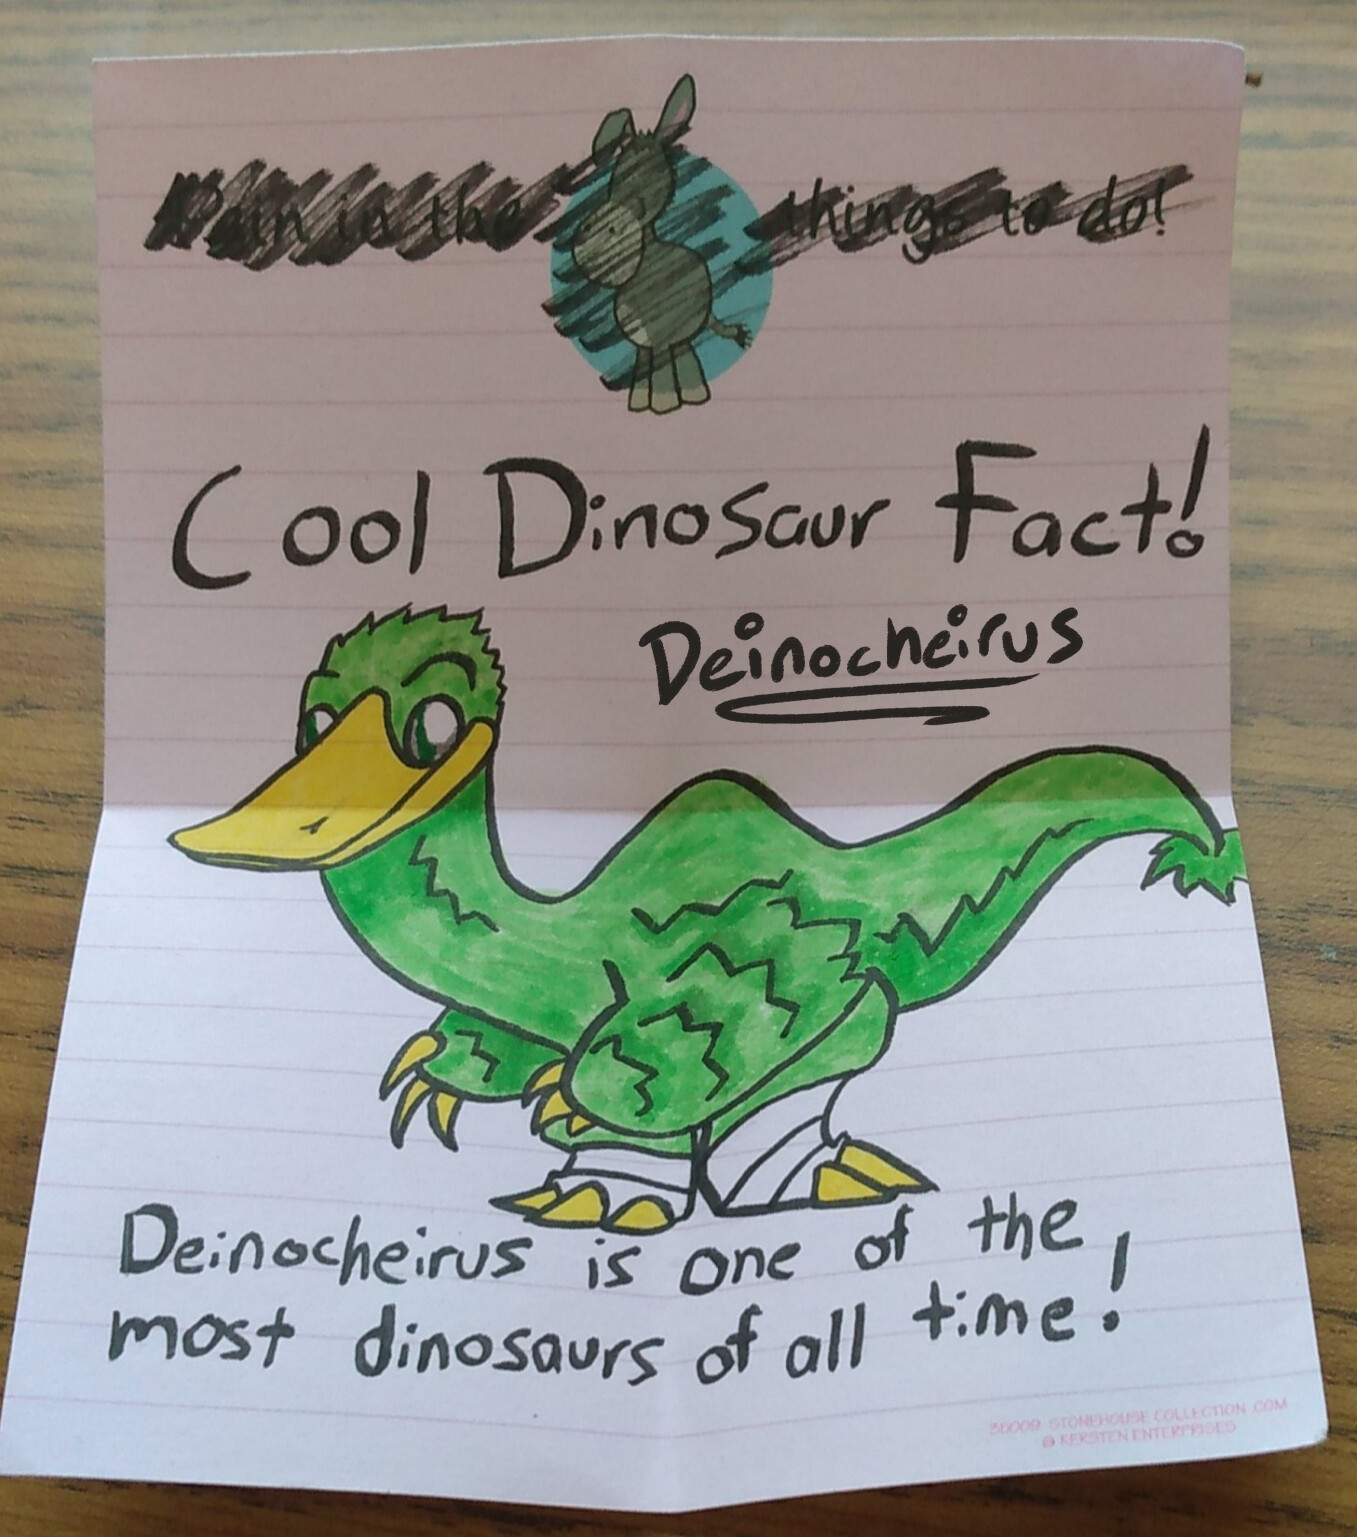 Pain in the things to do!
Cool Dinosaur Fact!
Deinocheirus
Deinocheirus is one of the
most dinosaurs of all time!
36009 STONEHOUSE COLLECTION.COM
@ KERSTEN ENTERPRISES